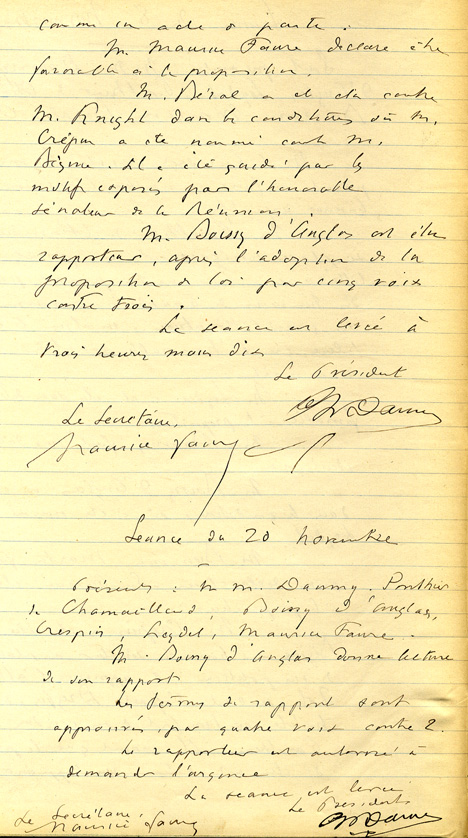 comme un acte
M. Maurice Faure declare être
favorable à la proposition.
M. Béral a été élu contre
M. Knight dans les conditions où M.
Crépin a été nommé contre M.
Il a été guidé par les
motifs exposés par l'honorable
sénateur de la Réunion.
M. Boissy d'Anglas est élu
rapporteur, après l'adoption de la
proposition de loi par cinq voix
contre trois.
La seance est levée à
trois heures moins dix
Le Président
Le Secrétaire,
Maurice Faure
Seance du 20 novembre
Présents : M. M. Danmy, Ponthier
de Chamaillard, Boissy d'Anglas,
Crespin, Leydet, Maurice Faure.
M. Boissy d'Anglas donne lecture
de son rapport
Les termes du rapport sont
approuvés par quatre voix contre 2.
Le rapporteur est autorisé à
demander l'urgence
La seance est levée
Le Président
Le Secrétaire,
Maurice Faure